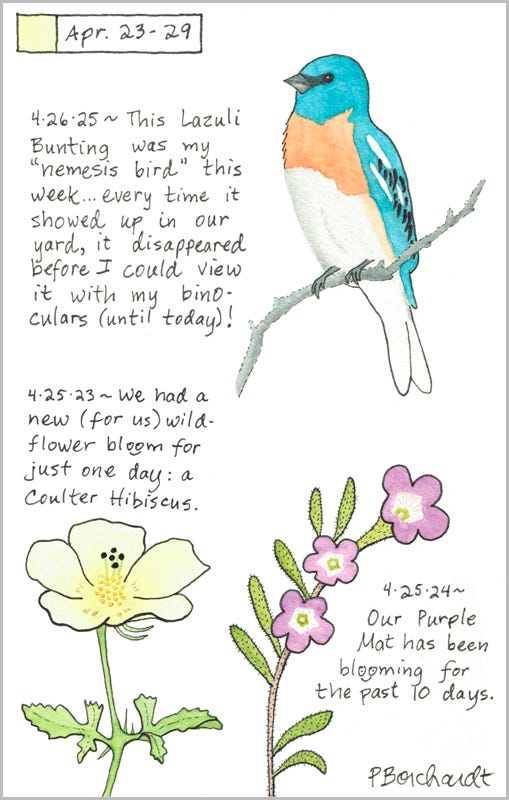 Apr. 23-29
4.26.25 ~ This Lazuli
Bunting was my
"nemesis bird" this
week... every time it
showed up in our
yard, it disappeared
before I could view
it with my bino-
culars (until today)!
4.25.23 ~ We had a
new (for us) wild-
flower bloom for
just one day: a
Coulter Hibiscus.
4.25.24 ~
Our Purple
Mat has been
blooming for
the past 10 days.
PBorchardt